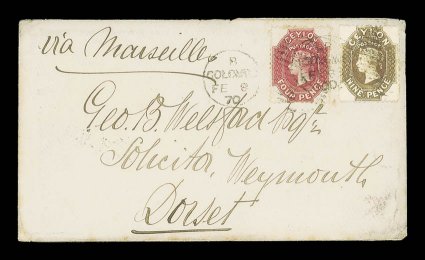 via Marseilles
B
COLOMBO
FE 8
70
CEYLON
POSTAGE
FOUR PENCE
CEYLON
POSTAGE
NINE PENCE
Geo. B. Welsford Esqre
Solicitor, Weymouth
Dorset